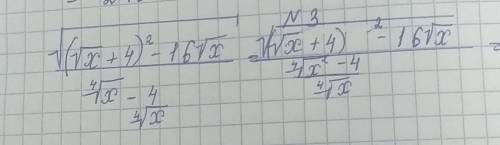 N 3
√((√x + 4)² - 16√x) / (⁴√x - 4/⁴√x) = √((√x + 4)² - 16√x) / ((⁴√x² - 4)/⁴√x) =